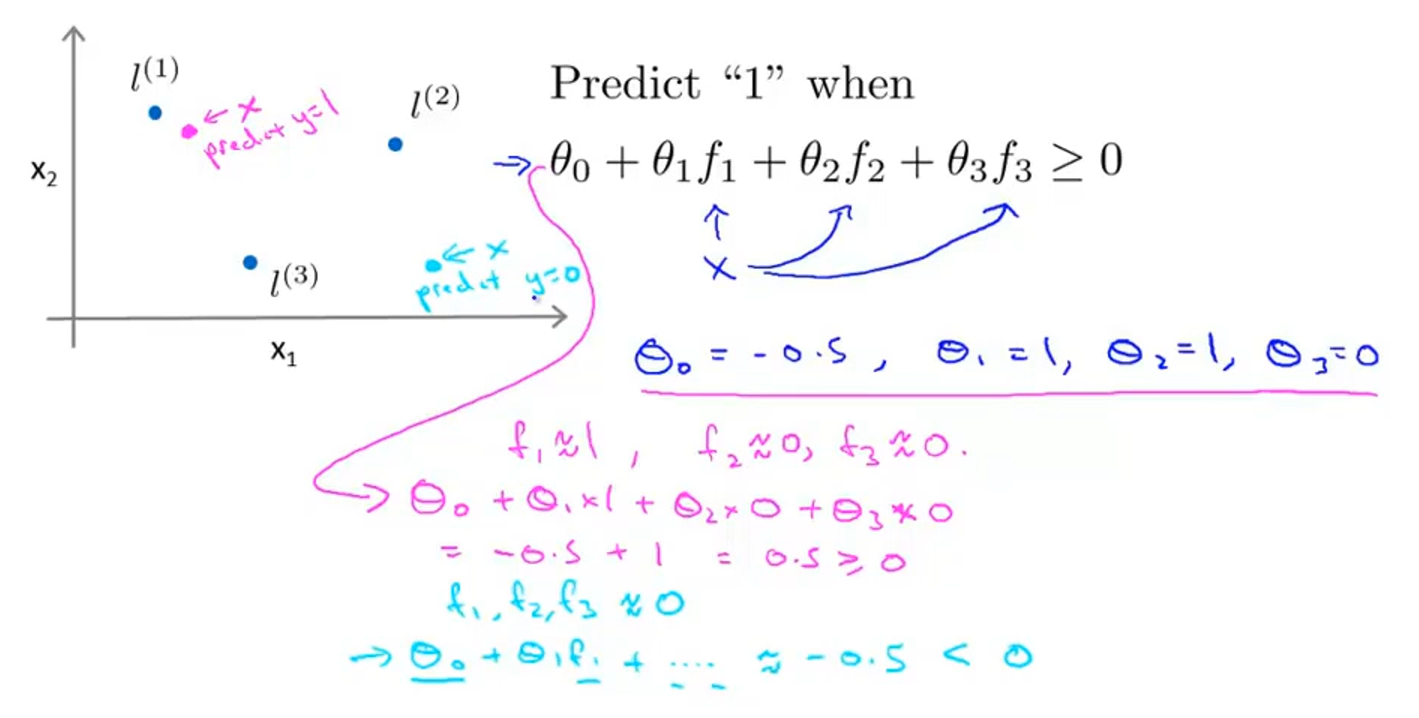 l^{(1)}
← x
predict y=1
l^{(2)}
x₂
l^{(3)}
← x
predict y=0
x₁
Predict “1” when
→ θ₀ + θ₁f₁ + θ₂f₂ + θ₃f₃ ≥ 0
↑
x
θ₀ = -0.5, θ₁=1, θ₂=1, θ₃=0
f₁≈1, f₂≈0, f₃≈0.
→ θ₀ + θ₁×1 + θ₂×0 + θ₃×0
= -0.5 + 1 = 0.5 ≥ 0
f₁, f₂, f₃ ≈ 0
→ θ₀ + θ₁f₁ + .... ≈ -0.5 < 0